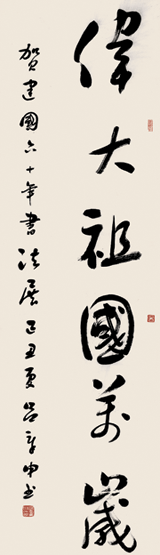 偉大祖國萬歲
賀建國六十年書法展己丑夏呂章申書